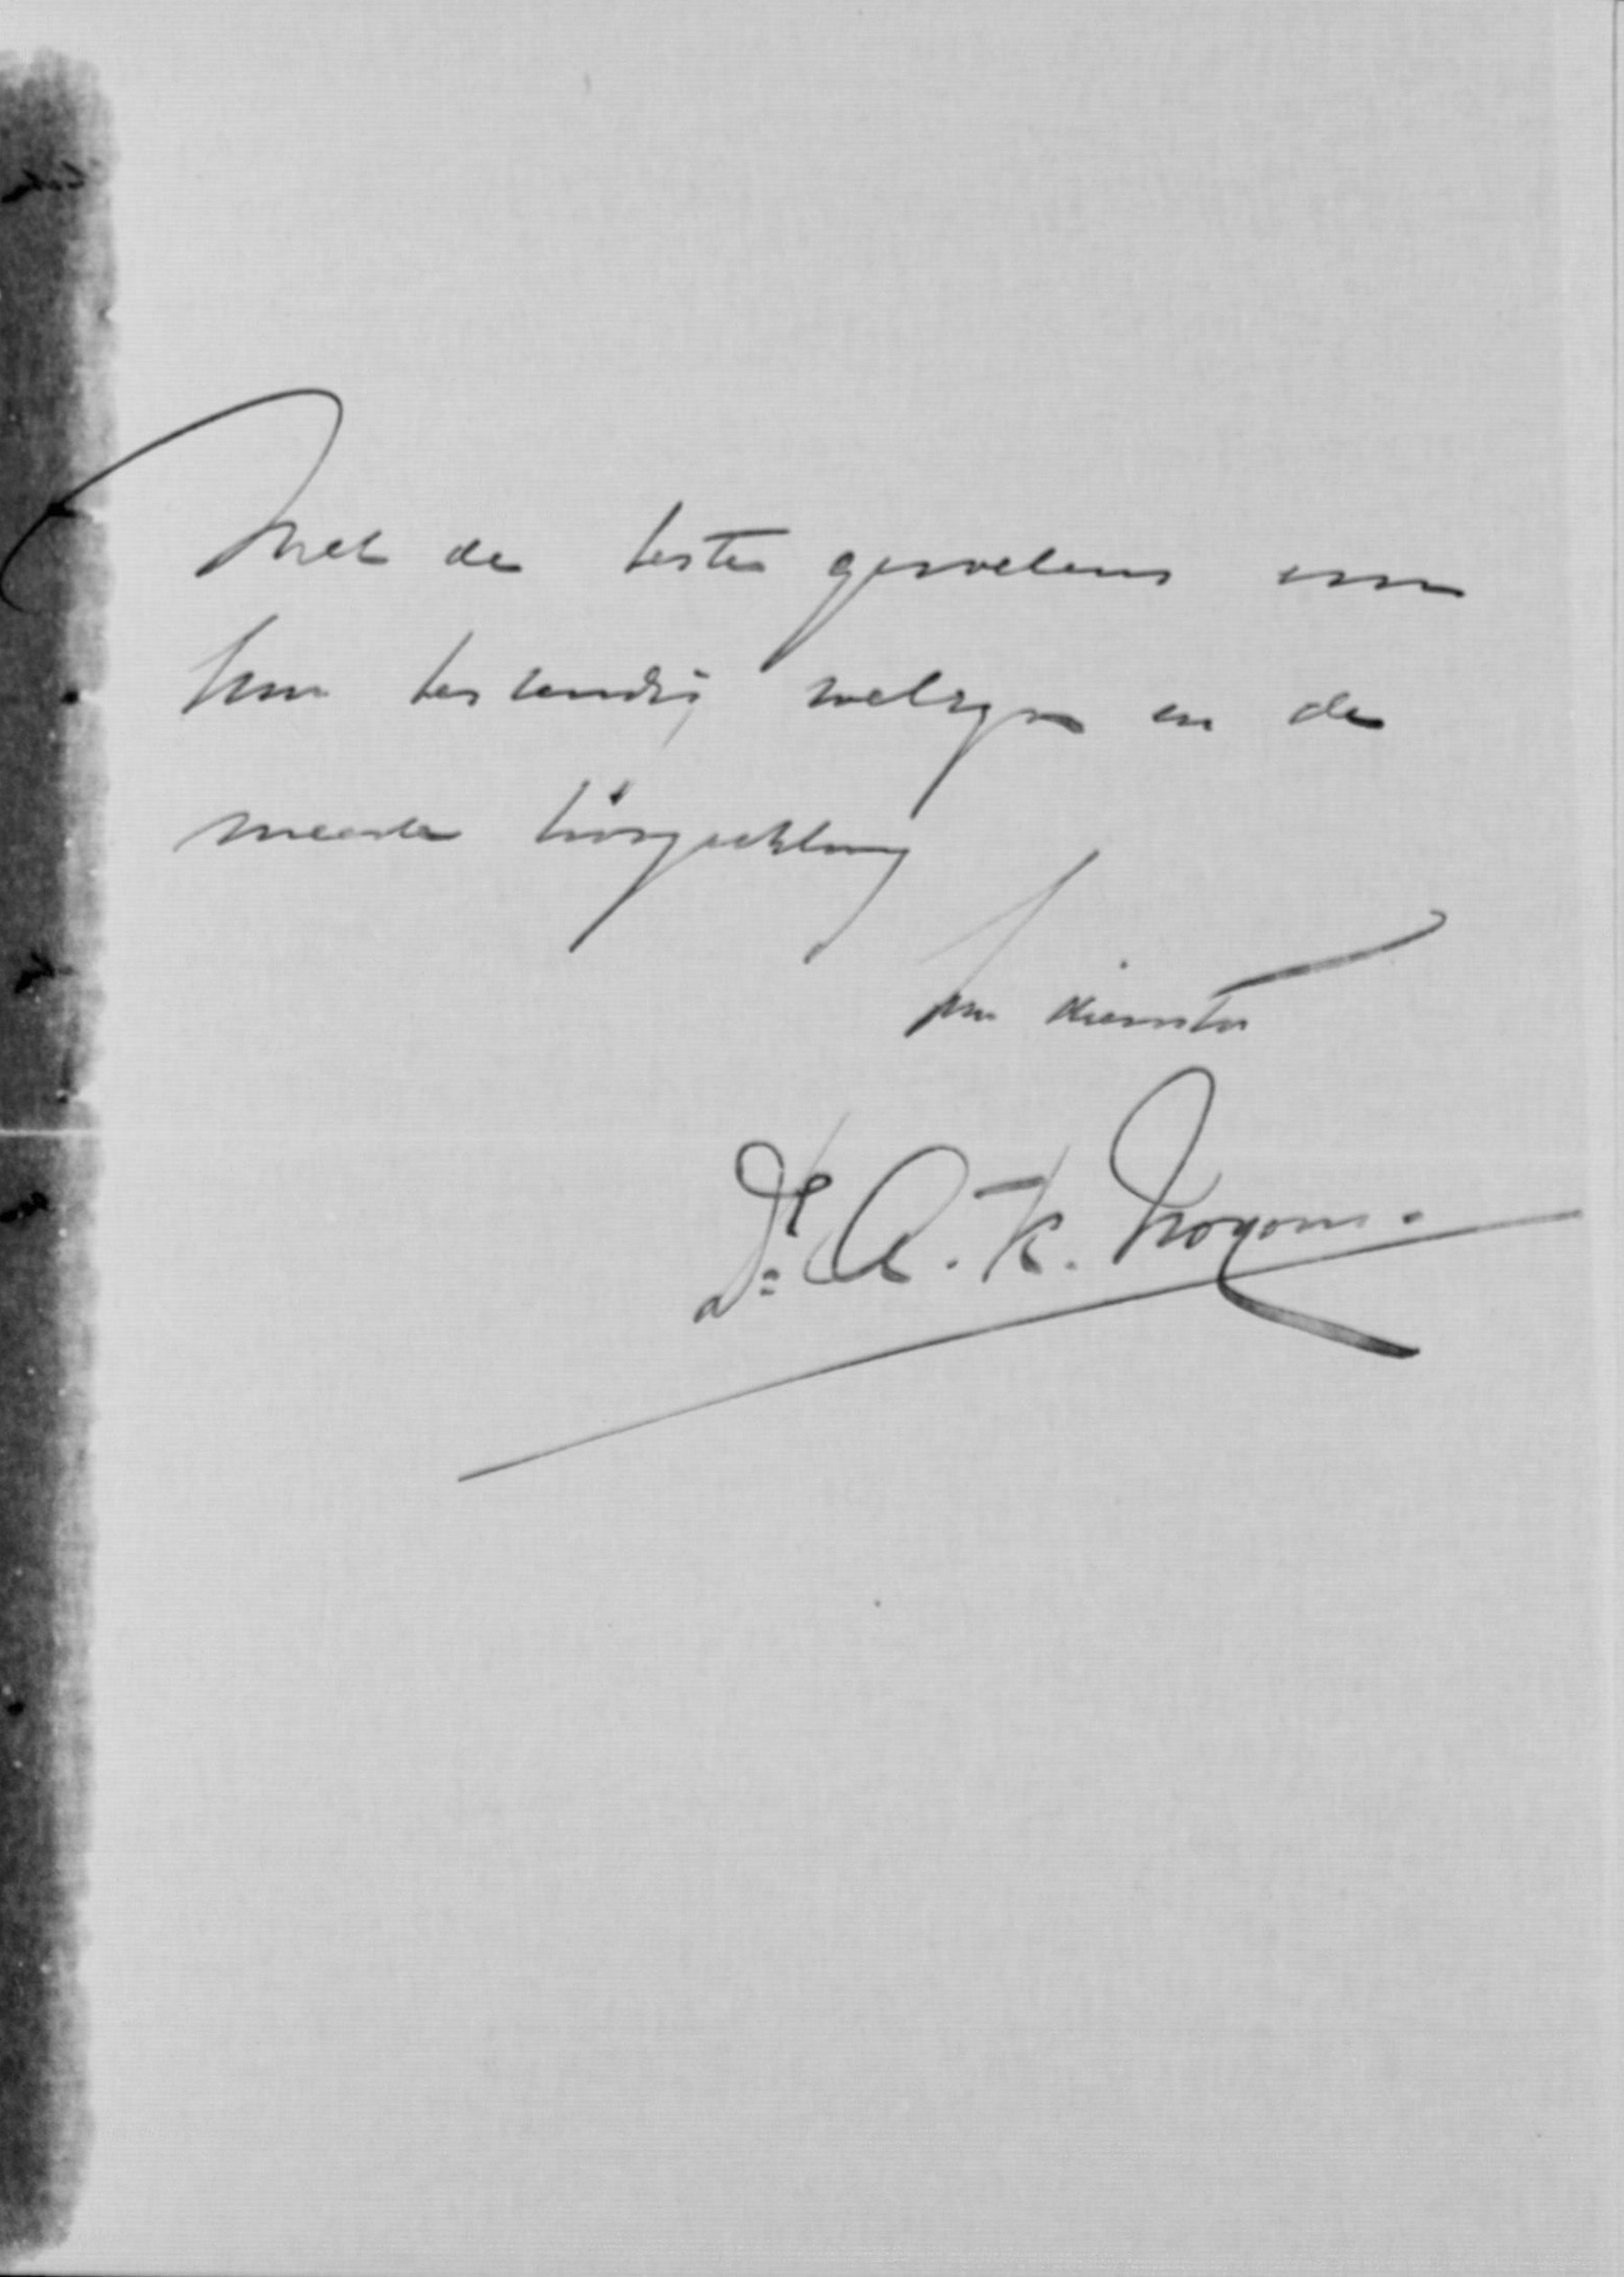 Met de beste gevoelens voor
hun bestendig welzijn en de
meeste hoogachting
Uw dienstw
Dr. A. K. Noyons.